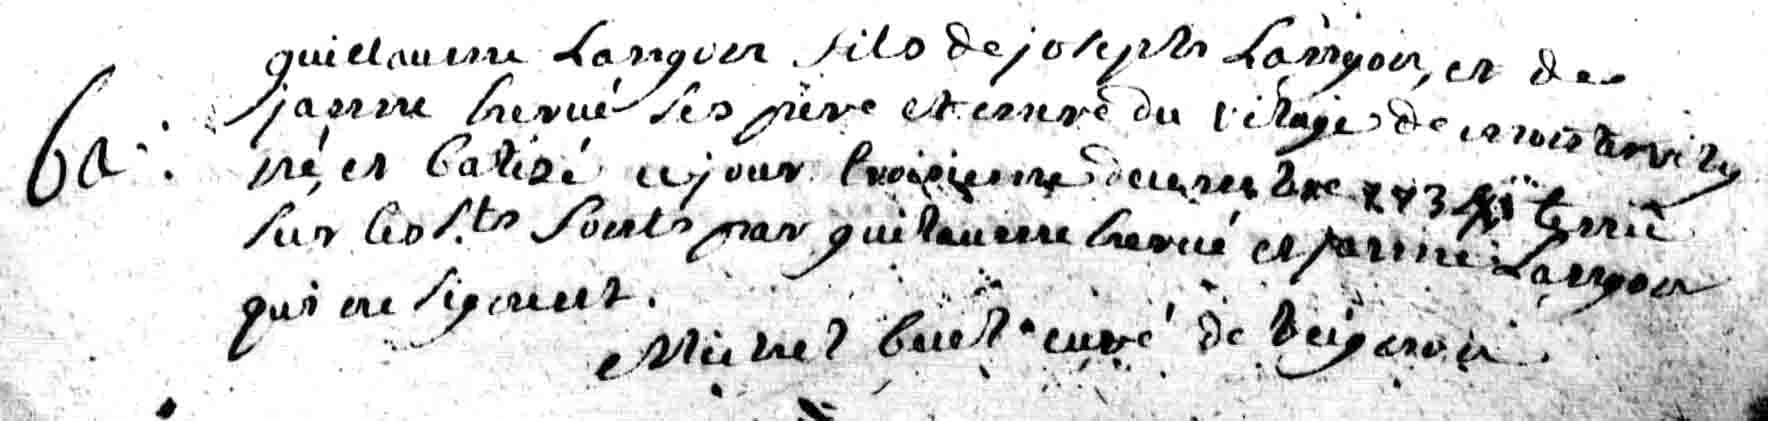 guillaume Langoer fils de joseph Langoer, et de
ba: janne hervé ses père et mere du vilage de
né, et batisé ce jour troisieme decembre tenu
sur les f.ts fonts par guillaume hervé et janne Langoer
qui ne signent.
Michel curé de